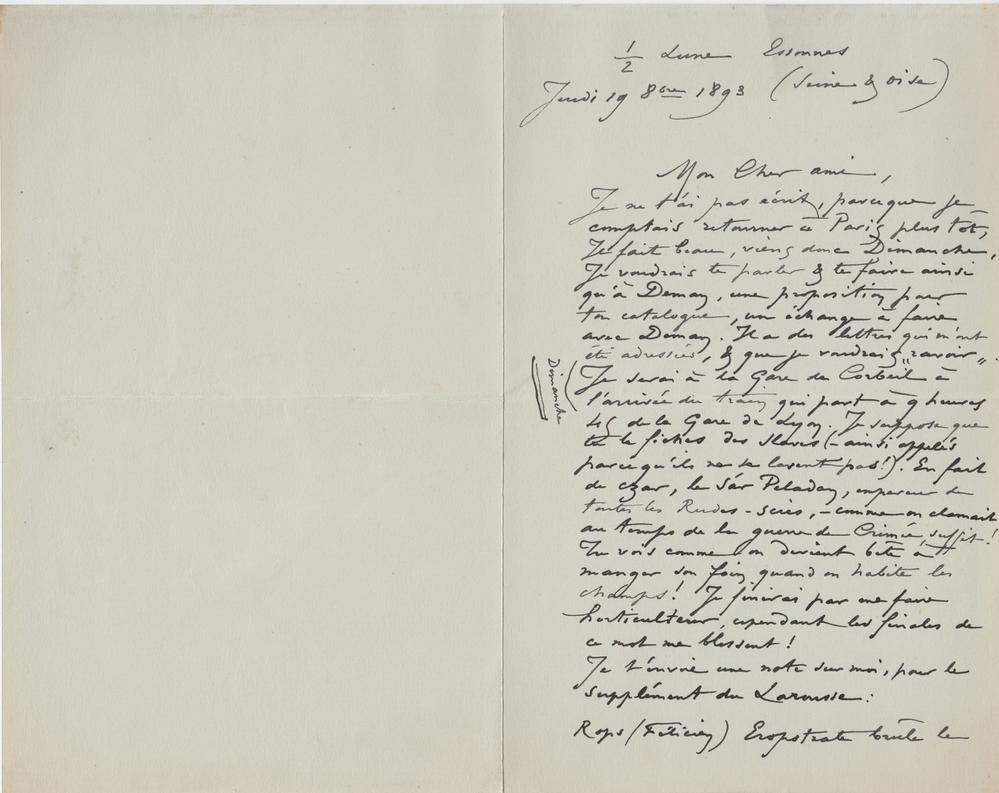 1/2 Lune Essonnes
Jeudi 19 8bre 1893 (Seine & Oise)
Mon Cher ami,
Je ne t'ai pas écrit, parceque je
comptais retourner à Paris plus tôt,
Il fait beau, viens donc Dimanche,
Je voudrais te parler & te faire ainsi
qu'à Deman, une proposition pour
ton catalogue, un échange à faire
avec Deman. Il a des lettres qui m'ont
été adressées, & que je voudrais „ravoir".
Dimanche
Je serai à la Gare de Corbeil à
l'arrivée du train qui part à 9 heures
45 de la Gare de Lyon. Je suppose que
tu te fiches des slaves (- ainsi appelés
parcequ'ils ne se lavent pas!). En fait
de czar, le Sâr Peladan, empereur de
toutes les Rudes-scies, - comme on clamait
au temps de la guerre de Crimée, suffit!
Tu vois comme on devient bête à
manger son foin quand on habite les
champs! Je finirai par me faire
horticulteur, cependant les finales de
ce mot me blessent!
Je t'envoie une note sur moi, pour le
supplément du Larousse:
Rops (Félicien) Eropstrate brûle le